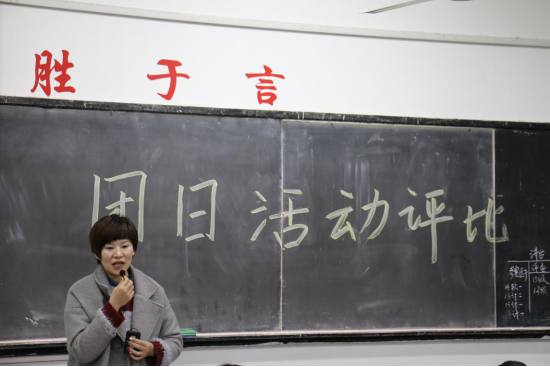 胜于言
团日活动评比